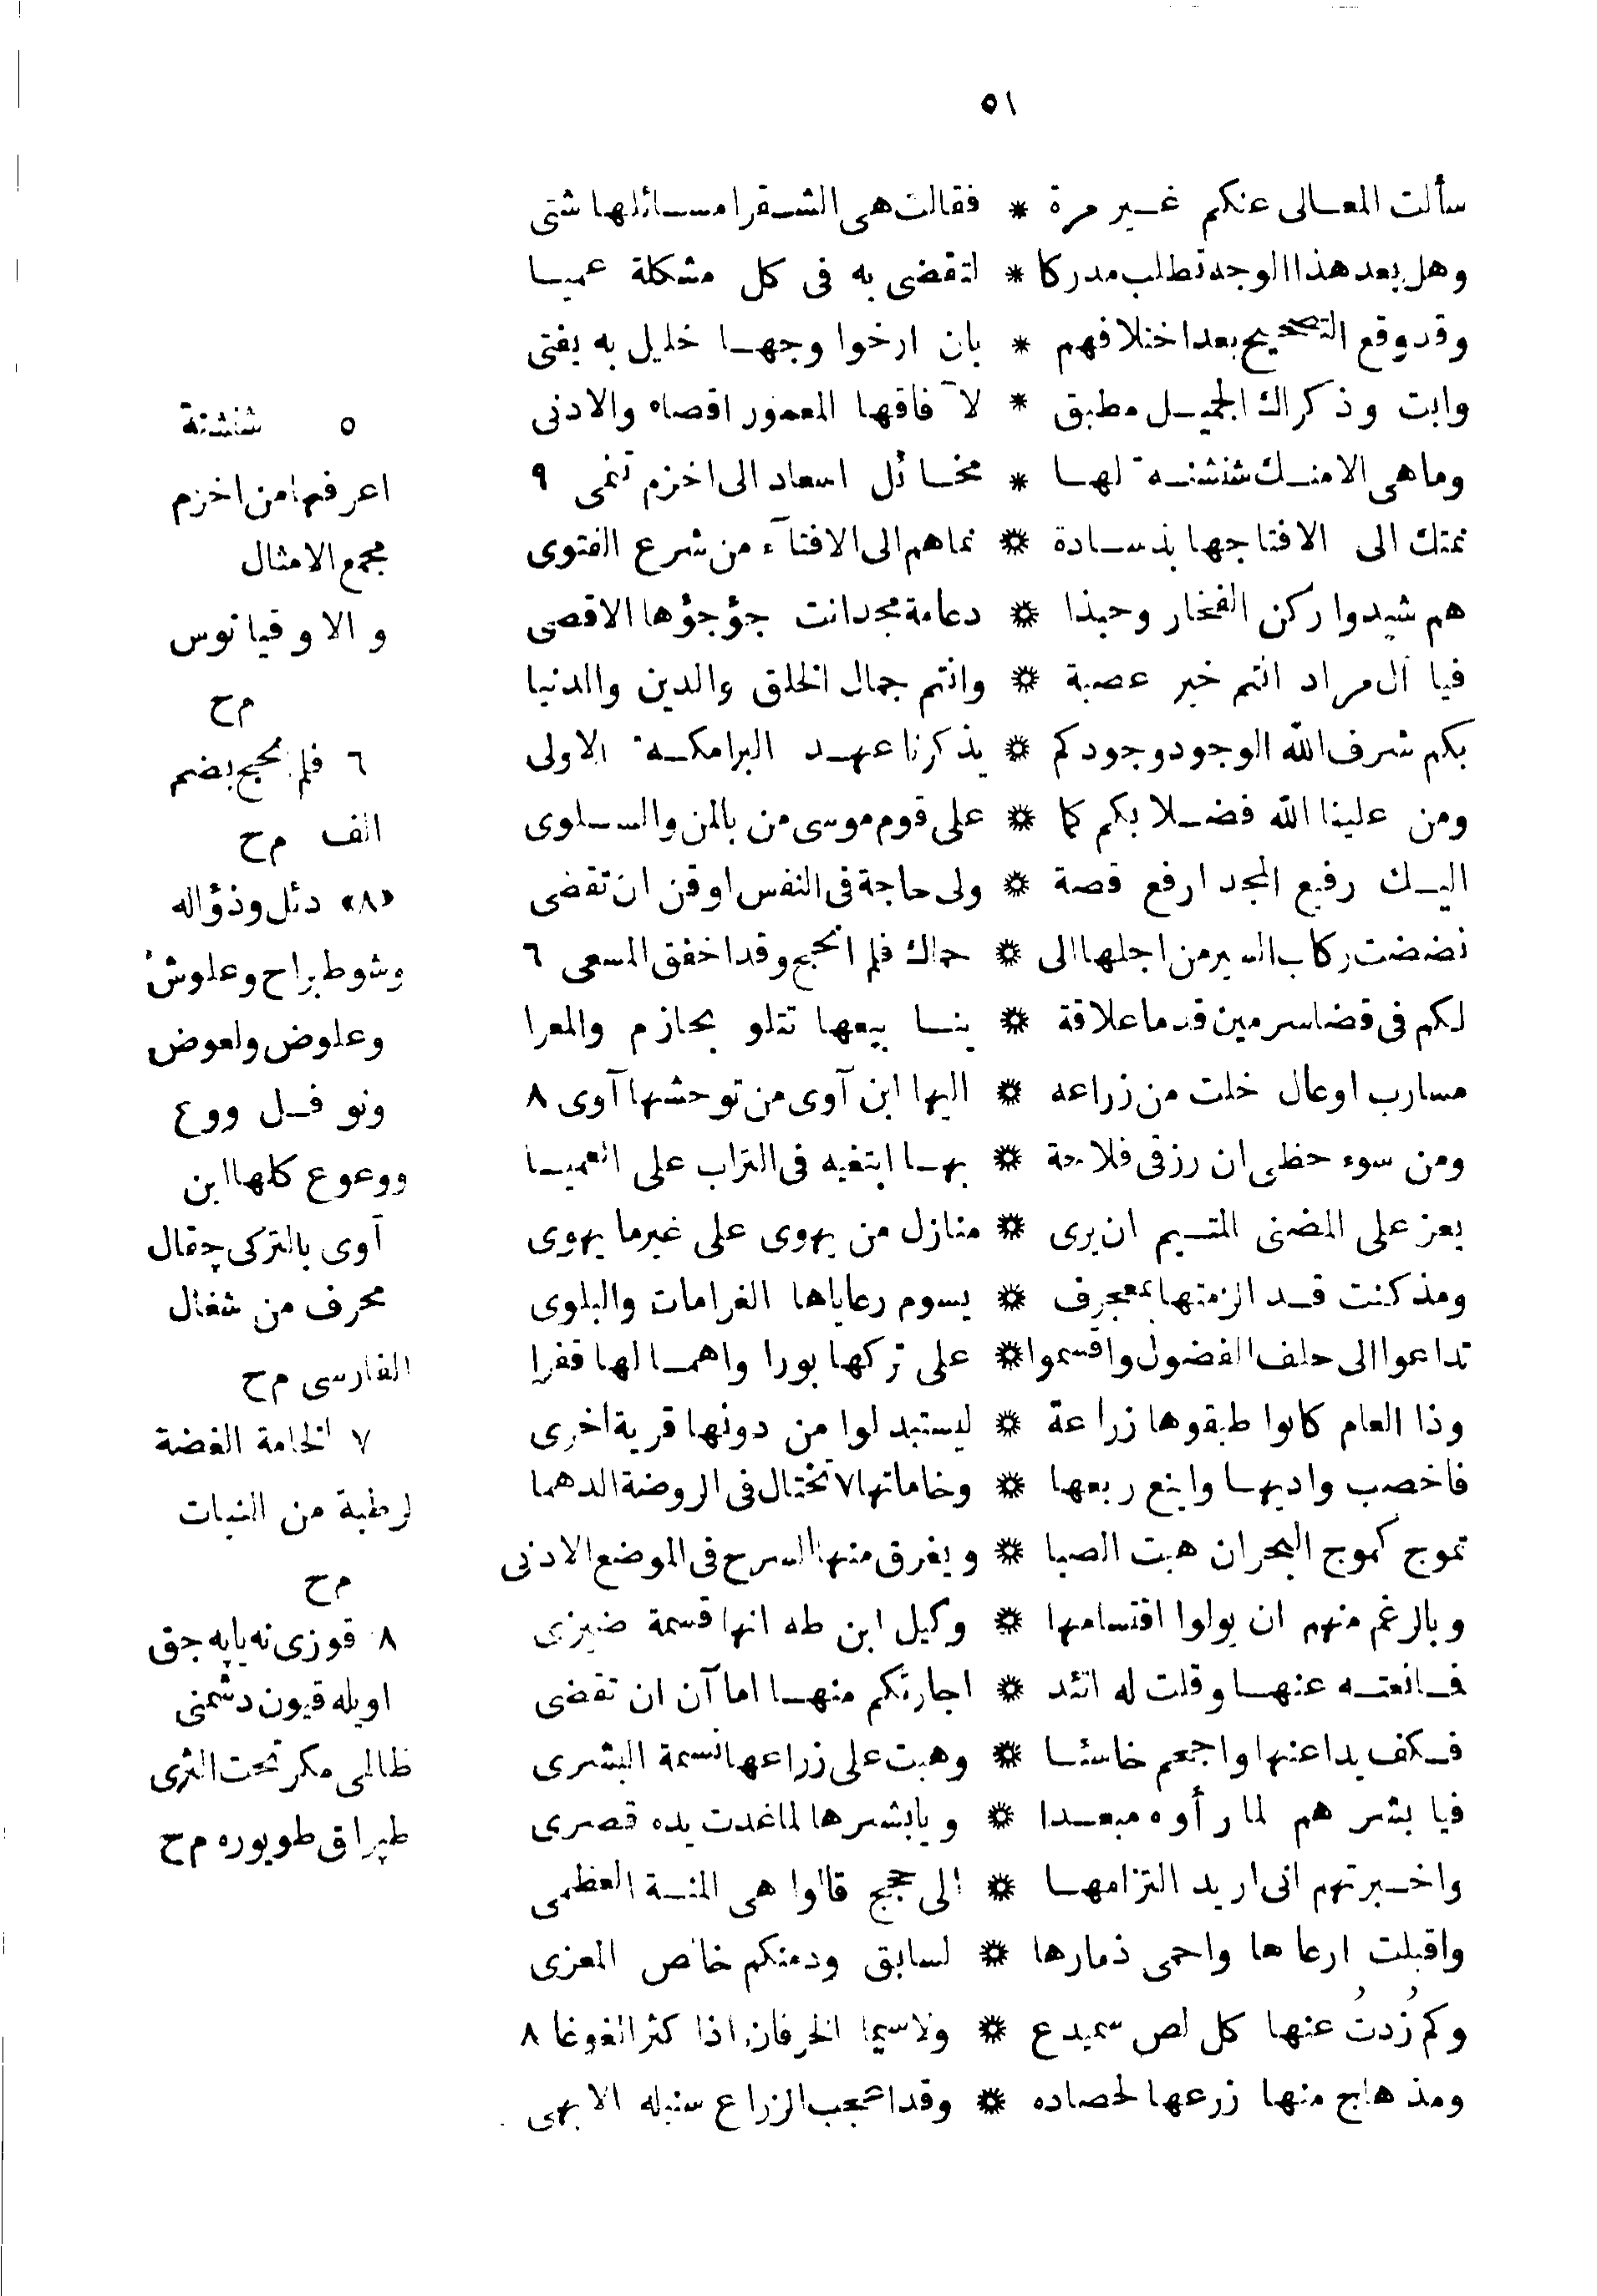 ٥١
سألت المعالى عنكم غير مرة * فقالت هى الشقرا مسائلها شتى
وهل بعد هذا الوجه تطلب مدركا * لتقضى به فى كل مشكلة عميا
وقد وقع التصحيح بعد اختلافهم * بان ارخوا وجها خليل به يفتى
وابت وذكراك الجميل مطبق * لآفاقها المعمور اقصاه والادنى
وما هى الا منك شنشنة لها * مخائل اسعاد الى اخزم تنمى ٩
نمتك الى الافتا جهابذ سادة * نماهم الى الافتآء من شرع الفتوى
هم شيدوا ركن الفخار وحبذا * دعامة مجد انت جؤجؤها الاقصى
فيا آل مراد انتم خير عصبة * وانتم جمال الخلق والدين والدنيا
بكم شرف الله الوجود وجودكم * يذكرنا عهد البرامكة الاولى
ومن علينا الله فضلا بكم كما * على قوم موسى من بالمن والسلوى
اليك رفيع المجد ارفع قصة * ولى حاجة فى النفس اوقن ان تقضى
نضضت ركاب السير من اجلها الى * حماك فلم انحج وقد اخفق المسعى ٦
لكم فى قضا سرمين قدما علاقة * بنا بيعها تتلو بحازم والمعرا
مسارب اوعال خلت من زراعه * اليها ابن آوى من توحشها آوى ٨
ومن سوء حظى ان رزقى فلاحة * بها ابتغيه فى التراب على العميا
يعز على المضنى المتيم ان يرى * منازل من يهوى على غير ما يهوى
ومذ كنت قد الزمتها بمعجرف * يسوم رعاياها الغرامات والبلوى
تداعوا الى حلف الفضول واقسموا * على تركها بورا واهمالها قفرا
وذا العام كانوا طبقوها زراعة * ليستبدلوا من دونها قرية اخرى
فاخصب واديها واينع ربعها * وخاماتها ٧ تختال فى الروضة الدهما
تموج كموج البحر ان هبت الصبا * ويغرق منها السرح فى الموضع الادنى
وبالرغم منهم ان يولوا اقتسامها * وكيل ابن طه انها قسمة ضيزى
فانعته عنها وقلت له اتئد * اجارتكم منها اما آن ان تقضى
فكف يدا عنها واجعم خاسئا * وهبت على زراعها نسمة البشرى
فيا بشرهم لما رأوه مبعدا * ويا بشرها لما غدت يده قصرى
واخبرتهم انى اريد التزامها * الى حجج قالوا هى المنة العظمى
واقبلت ارعاها واحمى ذمارها * لسابق ودمنكم خالص المعزى
وكم زُدتُ عنها كل لص سميدع * ولا سيما الخرفان اذا كثر الغوغا ٨
ومذ هاج منها زرعها لحصاده * وقد اعجب الزراع سنبله الابهى
٥ شنشنة
اعرفها من اخزم
مجمع الامثال
والاوقيانوس
م ح
٦ فلم انحج بضم
الف م ح
«٨» دئل وذؤاله
وشوط براح وعلوش
وعلوض ولعوض
ونوفل ووع
ووعوع كلها ابن
آوى بالتركى چقال
محرف من شغال
الفارسى م ح
٧ الخامة الغضة
لرطبة من النبات
م ح
٨ قوزى نه ياپه جق
اويله قيون دشمنى
ظالمى مكر تحت الثرى
طپراق طويوره م ح